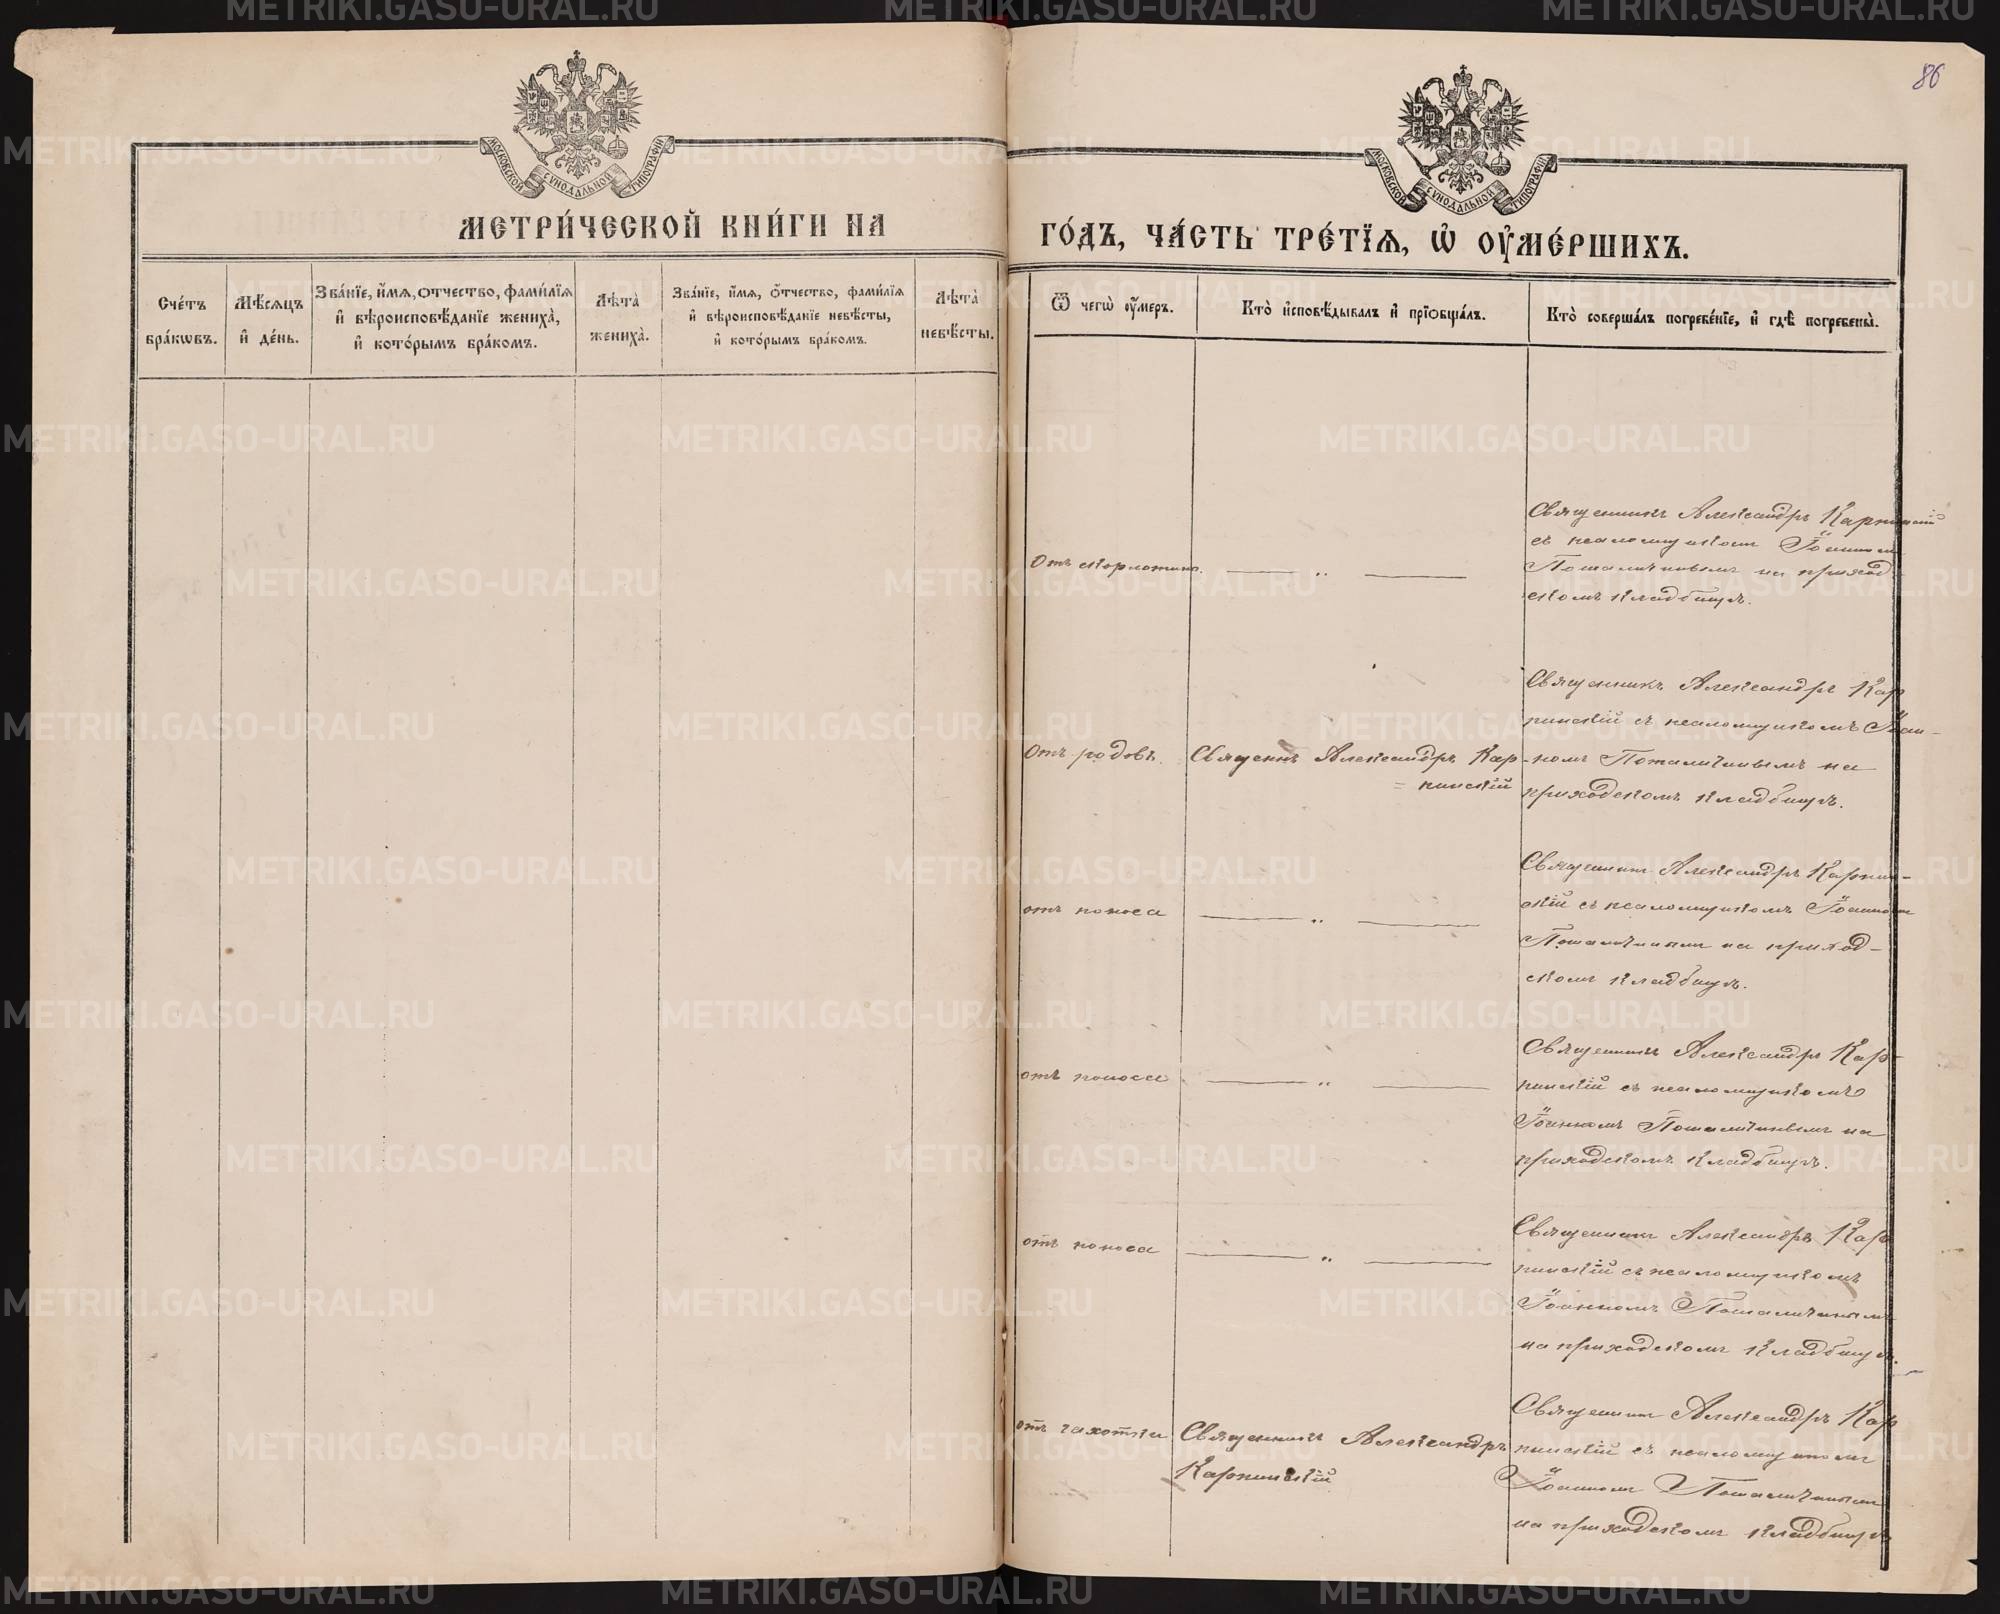 86
МОСКОВСКОЙ СѴНОДАЛЬНОЙ ТИПОГРАФІИ
МЕТРИ́ЧЕСКОЙ КНИ́ГИ НА
Сче́тъ бра́кωвъ.
Мѣ́сяцъ и҆ де́нь.
Зва́нїе, и҆́мѧ, ѻ҆́тчество, фами́лїѧ
и҆ вѣроисповѣ́данїе жениха̀,
и҆ кото́рымъ бра́комъ.
Лѣ́та жениха̀.
Зва́нїе, и҆́мѧ, ѻ҆́тчество, фами́лїѧ
и҆ вѣроисповѣ́данїе невѣ́сты,
и҆ кото́рымъ бра́комъ.
Лѣ́та невѣ́сты.
МОСКОВСКОЙ СѴНОДАЛЬНОЙ ТИПОГРАФІИ
ГО́ДЪ, ЧА́СТЬ ТРЕ́ТЇѦ, Ѡ҆ ОУ҆МЕ́РШИХЪ.
Ѿ чегѡ̀ оу҆́меръ.
Кто̀ и҆сповѣ́дывалъ и҆ прїѻбща́лъ.
Кто̀ соверша́лъ погребе́нїе, и҆ гдѣ̀ погребены̀.
Отъ скорлотины.
— „ —
Священникъ Александръ Карпинскій
съ псаломщикомъ Іоанномъ
Поталицынымъ на приход-
скомъ кладбищѣ.
Отъ родовъ.
Священъ Александръ Кар-
= пинскій
Священникъ Александръ Кар
пинскій съ псаломщикомъ Іоан-
номъ Поталицынымъ на
приходскомъ кладбищѣ.
отъ поноса
— „ —
Священникъ Александръ Карпин-
скій съ псаломщикомъ Іоанномъ
на приход-
скомъ кладбищѣ.
отъ поноса
— „ —
Священникъ Александръ Кар-
пинскій съ псаломщикомъ
Іоанномъ Поталицынымъ на
приходскомъ кладбищѣ.
отъ поноса
— „ —
Священникъ Александръ Кар
пинскій съ псаломщикомъ
Іоанномъ Поталицынымъ
на приходскомъ кладбищѣ.
отъ чахотки
Священникъ Александръ
Карпинскій
Священникъ Александръ Кар
пинскій съ псаломщикомъ
Іоанномъ Поталицынымъ
на приходскомъ кладбищѣ
METRIKI.GASO-URAL.RU